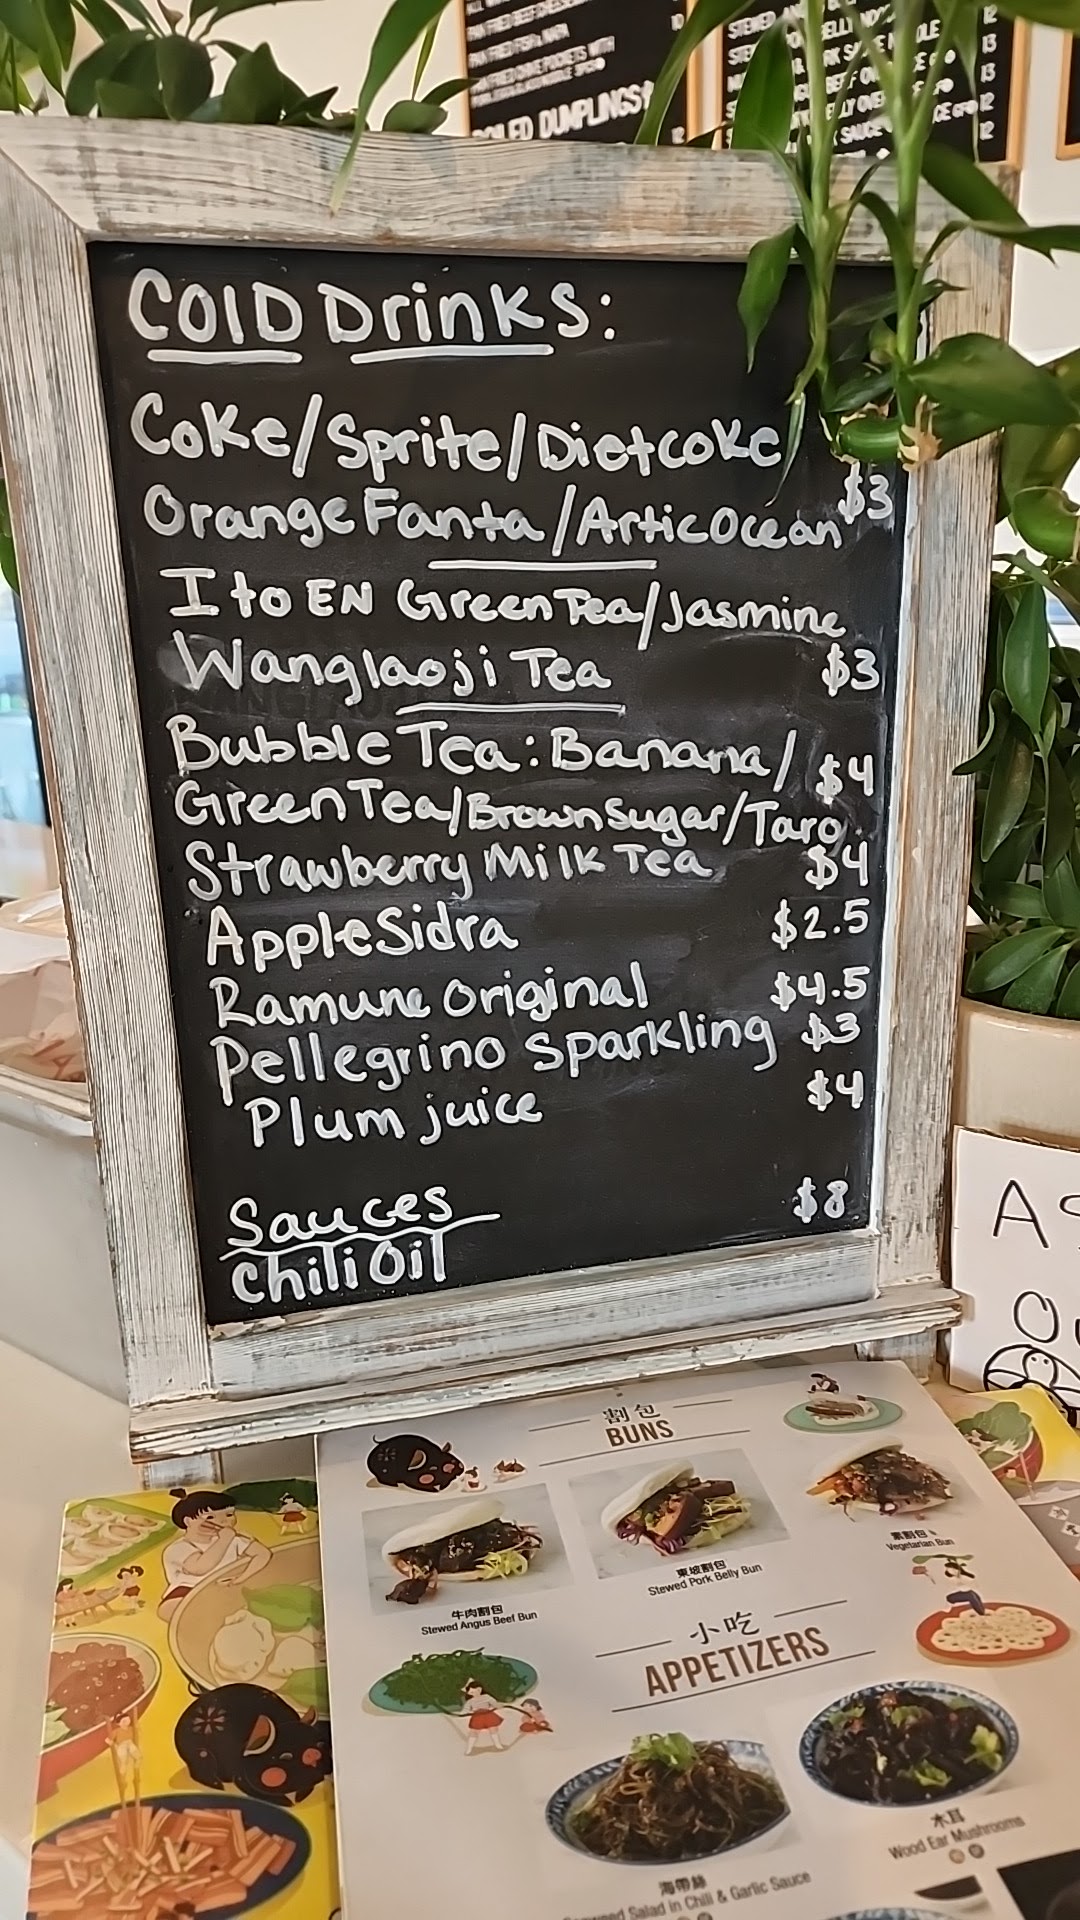 PAN FRIED BEEF
PAN FRIED
BOILED DUMPLINGS
10
12
STEWED
12
13
13
12
12
COLD Drinks:
Coke/Sprite/Dietcoke
$3
Orange Fanta/Artic Ocean
Ito EN Green Tea/Jasmine
Wanglaoji Tea $3
Bubble Tea: Banana/ $4
Green Tea/Brown Sugar/Taro
Strawberry Milk Tea $4
Apple Sidra $2.5
Ramune Original $4.5
Pellegrino Sparkling $3
Plum juice $4
Sauces $8
Chili Oil
割包
BUNS
牛肉割包
Stewed Angus Beef Bun
東坡割包
Stewed Pork Belly Bun
素割包
Vegetarian Bun
小吃
APPETIZERS
海帶絲
Salad in Chili & Garlic Sauce
木耳
Wood Ear Mushrooms